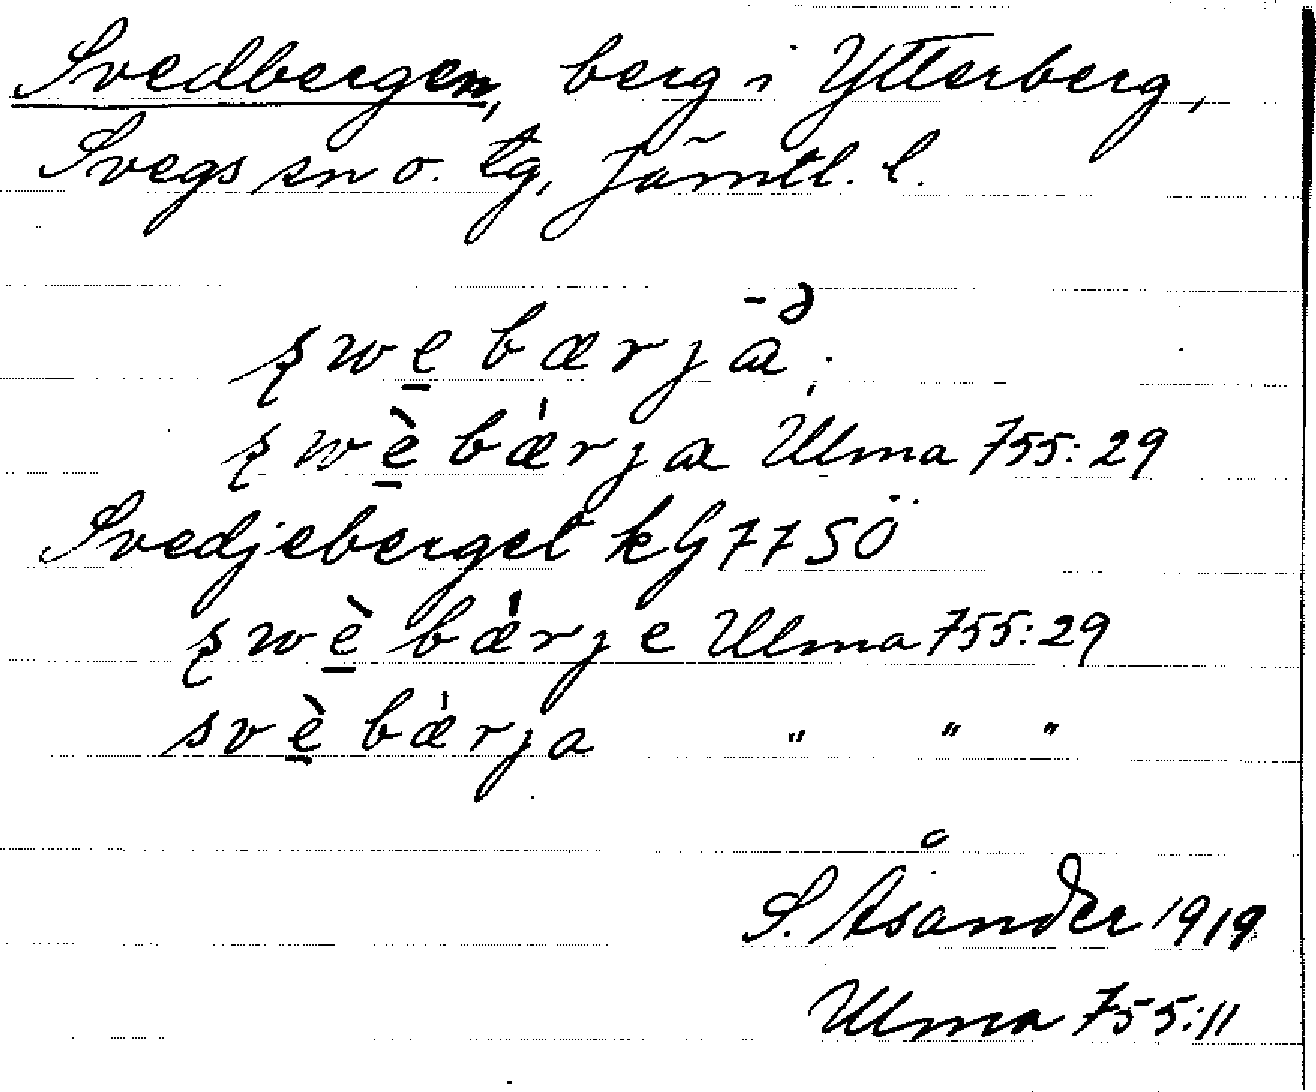 Svedbergen, berg i Ytterberg,
Svegs sn o. tg, Jämtl. l.
ʂwe̲bærjā̊,
ʂwè̲bǽrja Ulma 755:29
Svedjeberget kG 77 SÖ
ʂwè̲bǽrje Ulma 755:29
svè̲bǽrja " " "
S. Åsander 1919
Ulma 755:11